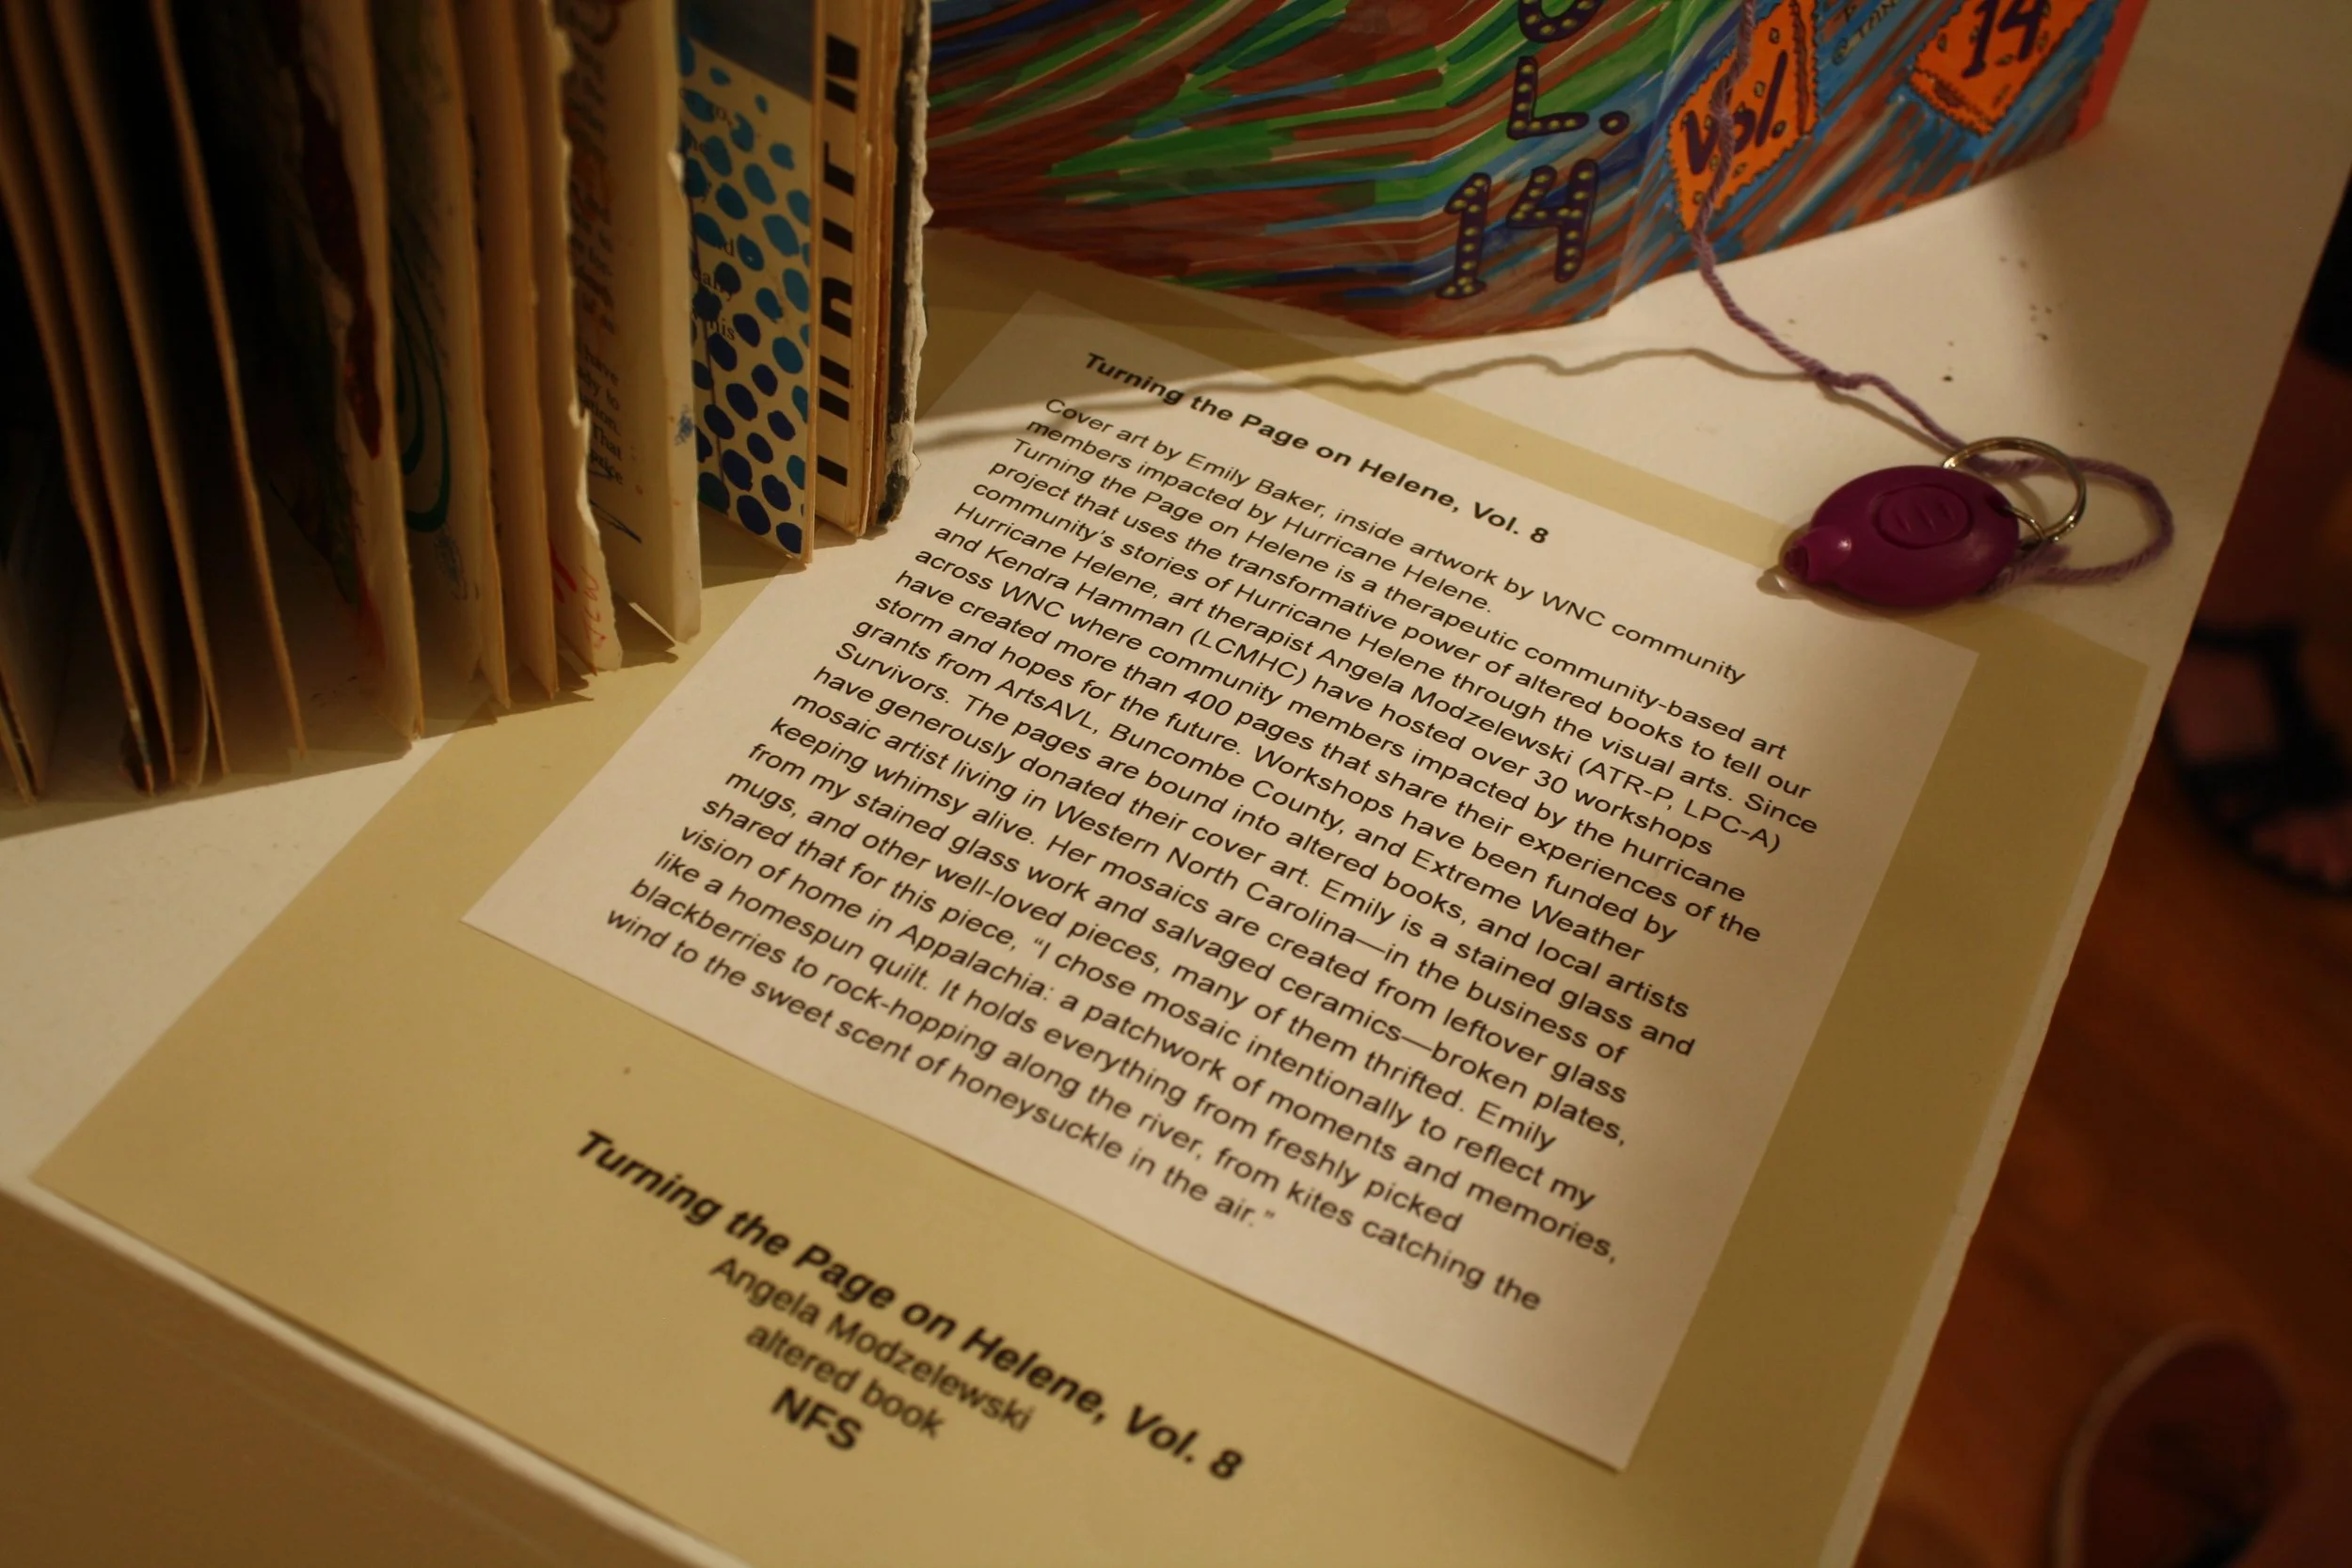 O
L.
14
Vol.
14
Turning the Page on Helene, Vol. 8
Cover art by Emily Baker, inside artwork by WNC community
members impacted by Hurricane Helene.
Turning the Page on Helene is a therapeutic community-based art
project that uses the transformative power of altered books to tell our
community’s stories of Hurricane Helene through the visual arts. Since
Hurricane Helene, art therapist Angela Modzelewski (ATR-P, LPC-A)
and Kendra Hamman (LCMHC) have hosted over 30 workshops
across WNC where community members impacted by the hurricane
have created more than 400 pages that share their experiences of the
storm and hopes for the future. Workshops have been funded by
grants from ArtsAVL, Buncombe County, and Extreme Weather
Survivors. The pages are bound into altered books, and local artists
have generously donated their cover art. Emily is a stained glass and
mosaic artist living in Western North Carolina—in the business of
keeping whimsy alive. Her mosaics are created from leftover glass
from my stained glass work and salvaged ceramics—broken plates,
mugs, and other well-loved pieces, many of them thrifted. Emily
shared that for this piece, “I chose mosaic intentionally to reflect my
vision of home in Appalachia: a patchwork of moments and memories,
like a homespun quilt. It holds everything from freshly picked
blackberries to rock-hopping along the river, from kites catching the
wind to the sweet scent of honeysuckle in the air.”
Turning the Page on Helene, Vol. 8
Angela Modzelewski
altered book
NFS